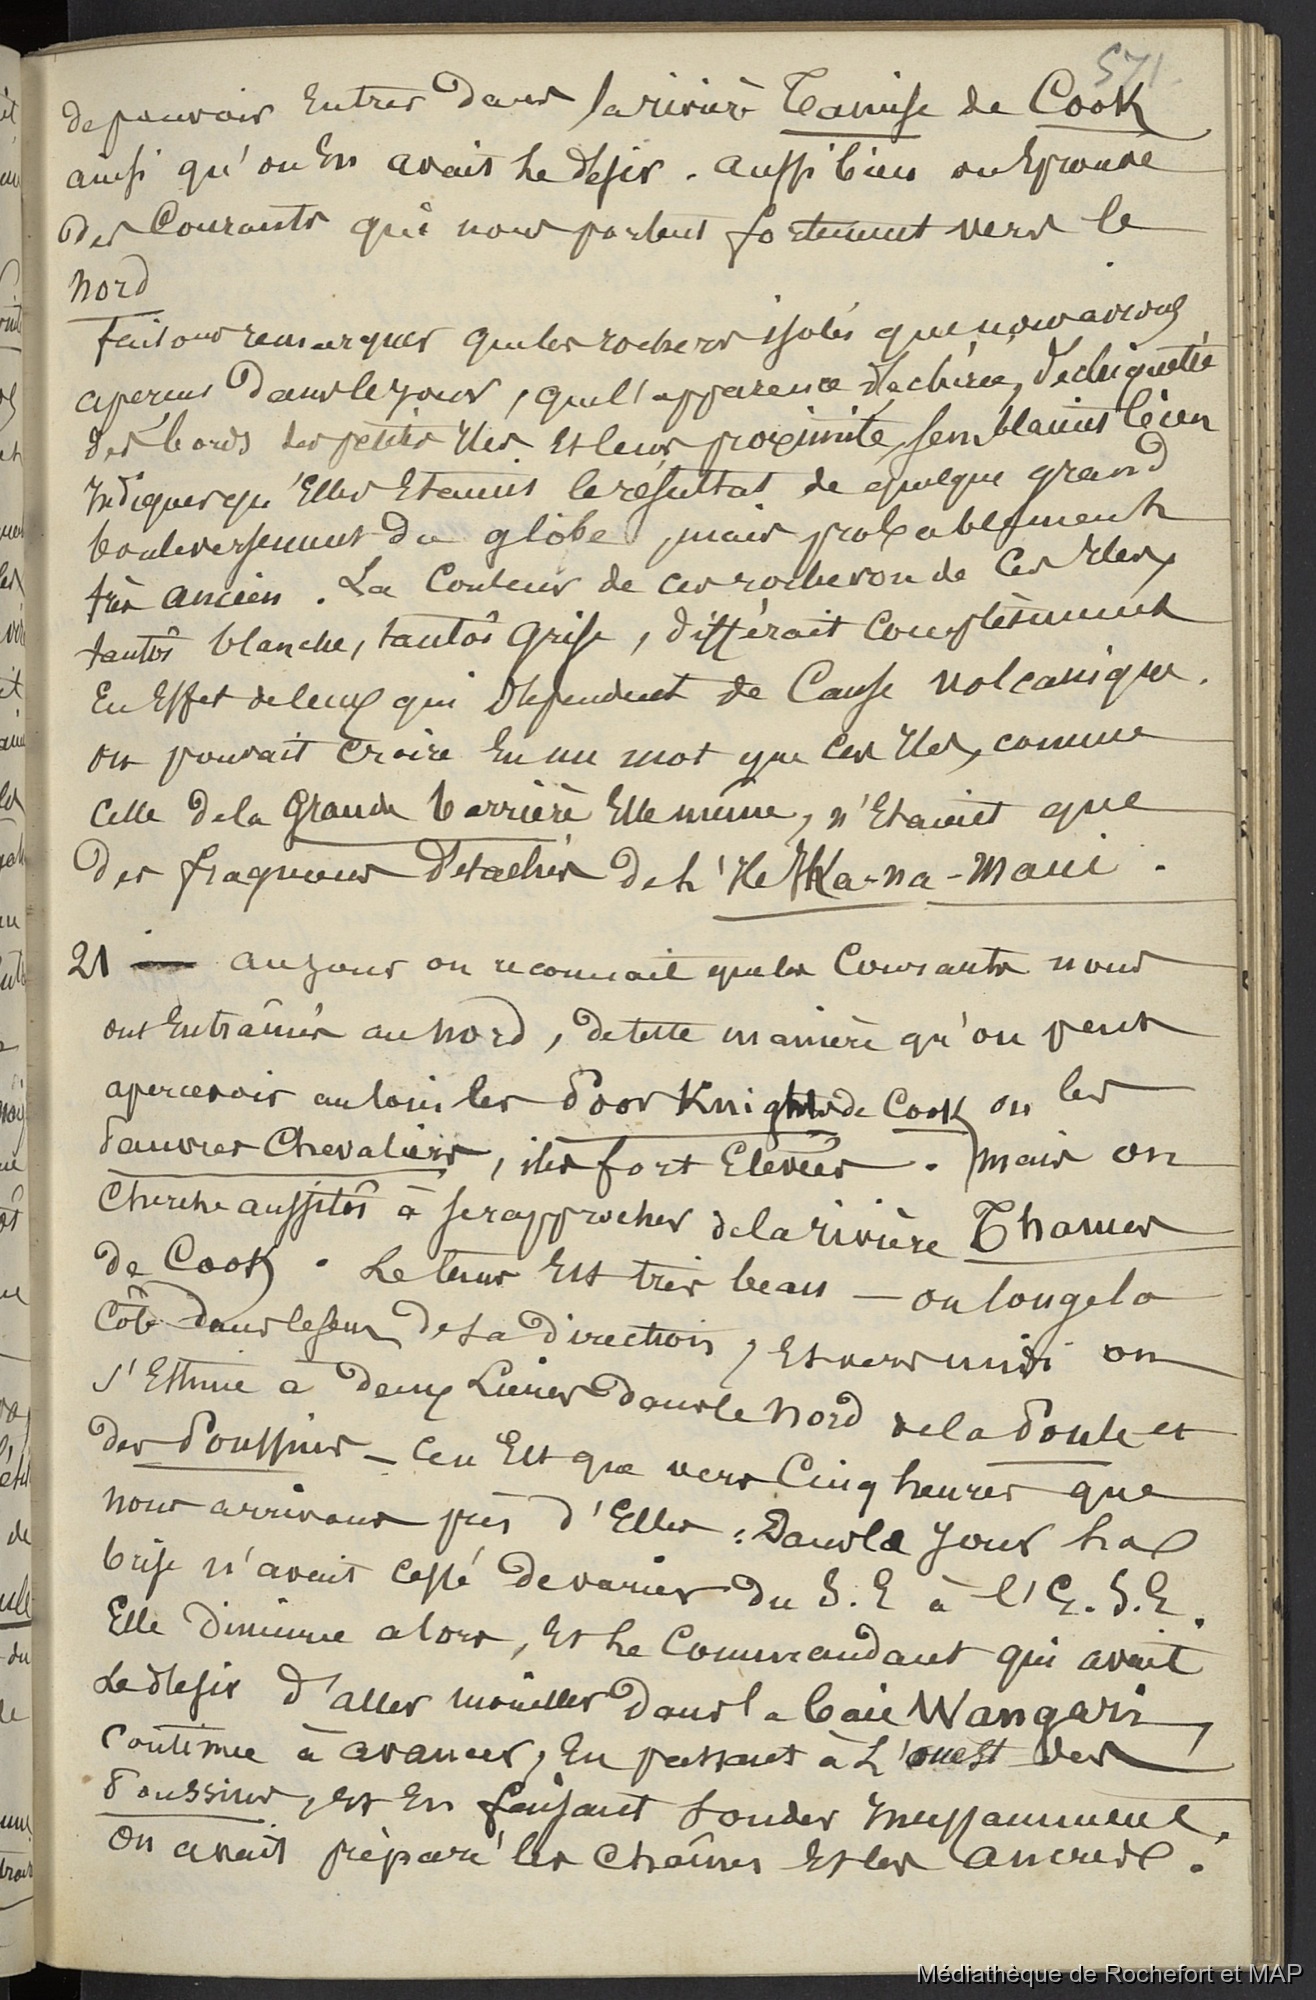 571.
de pouvoir Entrer Dans la rivière Tamise de Cook
ainsi qu'on En avait Le désir. aussi bien on Eprouve
Des Courants qui nous portent fortement vers le
nord
faisons remarquer que les rochers isolés que nous avions
aperçus Dans le jour, que l'apparence déchirée, déchiquetée
des bords des petites Iles Et leur proximité, semblaient bien
Indiquer qu'Elles Etaient le résultat de quelque grand
bouleversement du globe, mais probablement
très ancien. La Couleur de ces rochers ou de Ces Iles,
tantôt blanche, tantôt grise, différait complètement
En Effet de ceux qui dépendent de Cause volcanique.
on pouvait croire En un mot que Ces Iles, comme
celle de la Grande barrière Elle même, n'Etaient que
Des fragmens détachés de L'Ile Ika-na-Maui.
21 — au jour on reconnait que les Courants nous
ont Entraînés au nord, de telle manière qu'on peut
apercevoir au loin les Poor Knights de Cook ou les
Pauvres Chevaliers, iles fort Elevées. mais on
cherche aussitôt à se rapprocher de la rivière Thames
de Cook. Le tems Est très beau — on longe la
Côte dans le sens de sa direction, Et vers midi on
s'Estime à Deux Lieues Dans le nord de la Poule et
des Poussins — Ce n'Est que vers Cinq heures que
nous arrivons près d'Elles. Dans le jour La
brise n'avait cessé de varier du S. E à l'E. S. E.
Elle diminue alors, Et Le Commandant qui avait
Le désir d'aller mouiller Dans la baie Wangari,
Continue à avancer, En passant à L'ouest des
Poussins, et En faisant sonder Incessamment.
On avait préparé les chaînes Et les ancres.
Médiathèque de Rochefort et MAP